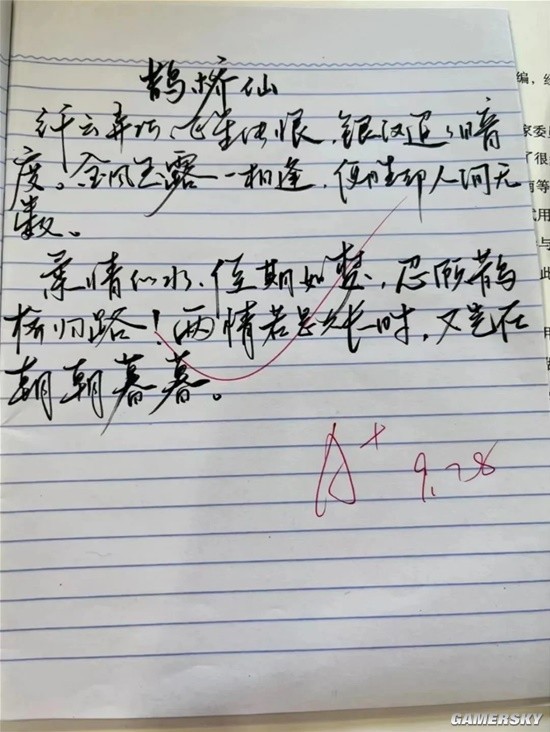 鹊桥仙
纤云弄巧,飞星传恨,银汉迢迢暗
度。金风玉露一相逢,便胜却人间无
数。
柔情似水,佳期如梦,忍顾鹊
桥归路!两情若是久长时,又岂在
朝朝暮暮。
A+ 9.28
编,
家委员
了很
南等
试用
与
此
GAMERSKY